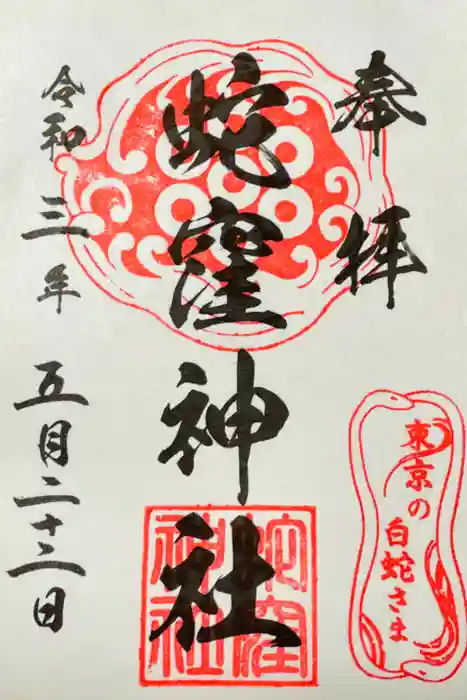 奉拝
蛇窪神社
令和三年五月二十二日
東京の
白蛇さま
蛇窪
神社